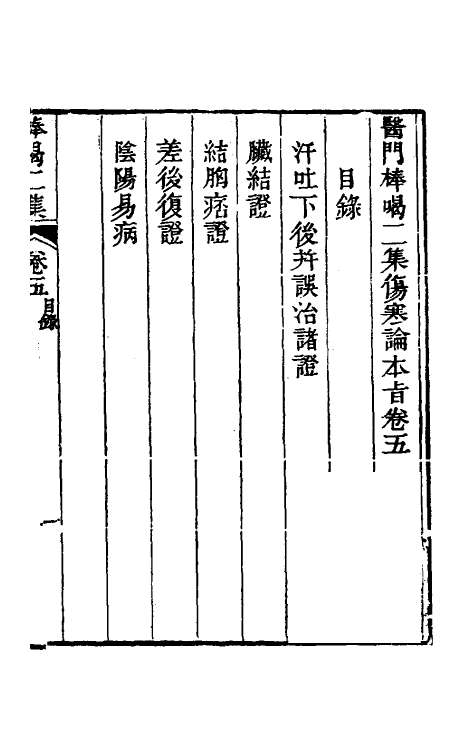 醫門棒喝二集傷寒論本旨卷五
目錄
汗吐下後并誤治諸證
臟結證
結胸痞證
差後復證
陰陽易病
棒喝二集
卷五
目錄